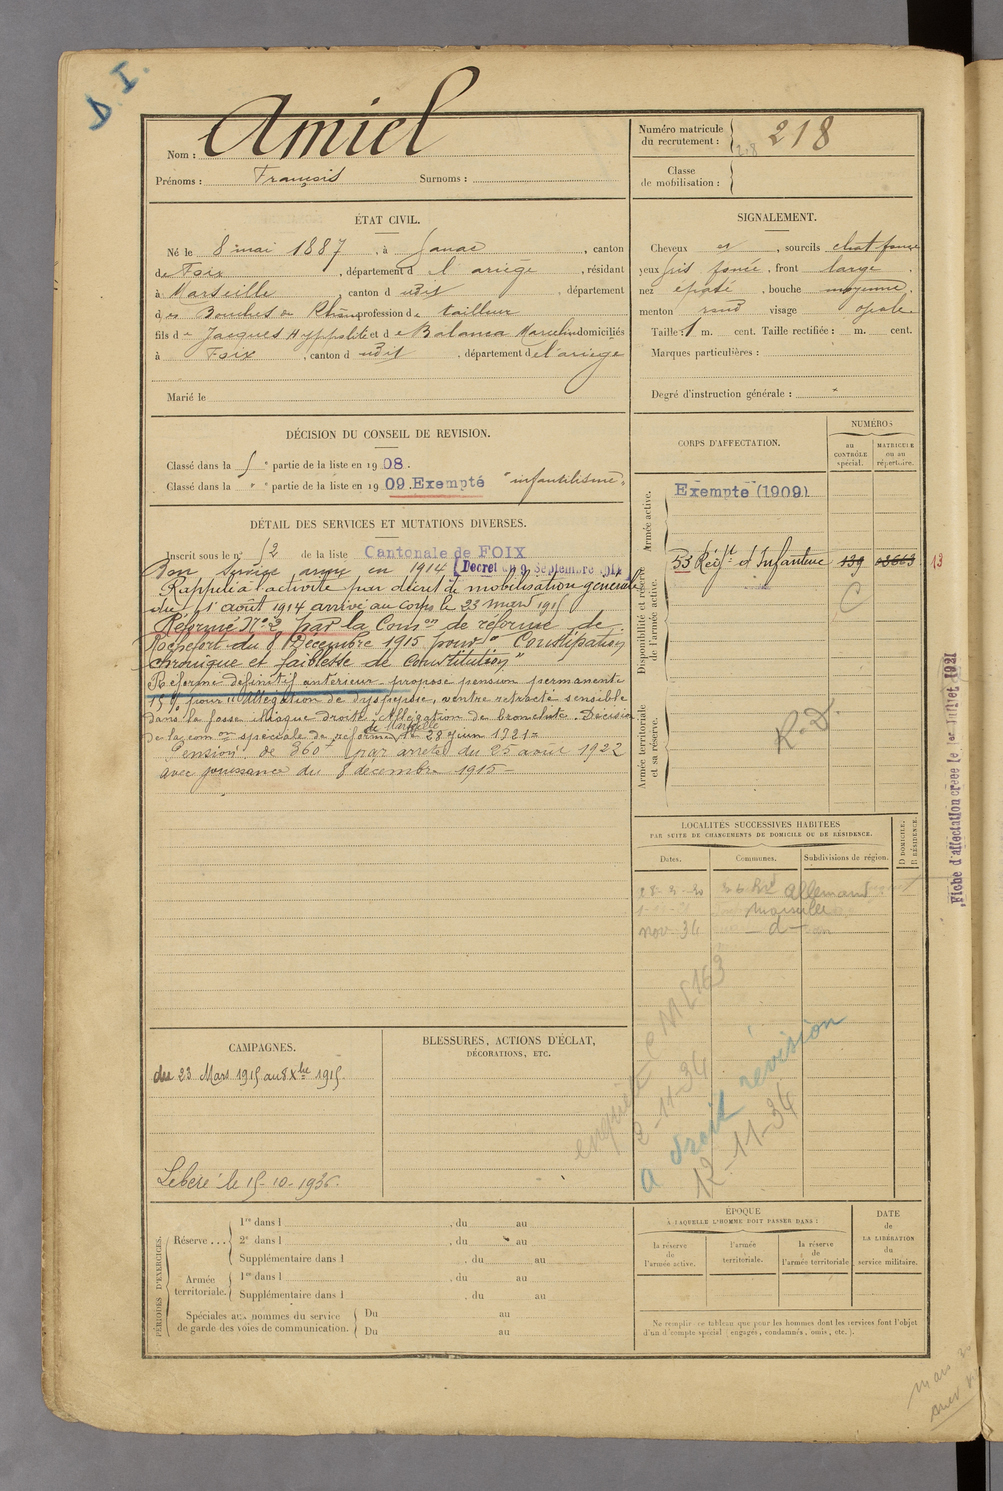 D. I.
Nom : Amiel
Prénoms : François Surnoms :
Numéro matricule
du recrutement : 218
Classe
de mobilisation :
ÉTAT CIVIL.
Né le 8 mai 1887, à Ganac, canton
de Foix, département d l'ariège, résidant
à Marseille, canton d udit, département
des Bouches du Rhône profession de tailleur
fils de Jacques Hyppolite et de Balanca Marcelin domiciliés
à Foix, canton d udit, département de l'ariège
Marié le
SIGNALEMENT.
Cheveux et, sourcils chat foncé
yeux gris foncé, front large
nez épaté, bouche moyenne
menton rond visage ovale.
Taille : 1 m. cent. Taille rectifiée : m. cent.
Marques particulières :
Degré d'instruction générale :
DÉCISION DU CONSEIL DE REVISION.
Classé dans la 5e partie de la liste en 1908.
Classé dans la " partie de la liste en 1909. Exempté "infantilisme"
DÉTAIL DES SERVICES ET MUTATIONS DIVERSES.
Inscrit sous le n° 52 de la liste Cantonale de FOIX
Bon service armé en 1914 (Décret du 9 Septembre 1914)
Rappelé à l'activité par décret de mobilisation générale
du 1er août 1914 arrivé au corps le 23 mars 1915
Réformé N° 2 par la Comon de réforme de
Rochefort du 8 Décembre 1915 pour "Constipation
chronique et faiblesse de constitution"
Réforme définitif antérieur propose pension permanente
15 % pour "Allégation de dyspepsie, ventre rétracté sensible
dans la fosse iliaque droite. Allégation de bronchite. Décision
de la comon spéciale de réforme de Marseille du 28 juin 1921
Pension de 360f par arrêté du 25 août 1922
avec jouissance du 8 décembre 1915
CORPS D'AFFECTATION.
NUMÉROS
au
CONTRÔLE
spécial.
MATRICULE
ou au
répertoire.
Armée active.
Exempté (1909)
Disponibilité et réserve
de l'armée active.
53 Régt d'Infanterie 139 13
C
Armée territoriale
et sa réserve.
R.D.
Fiche d'affectation créée le 1er Juillet 1921
LOCALITÉS SUCCESSIVES HABITÉES
PAR SUITE DE CHANGEMENTS DE DOMICILE OU DE RÉSIDENCE.
D DOMICILE.
R RÉSIDENCE.
Dates. Communes. Subdivisions de région.
28-2-20 36 Bd Allemand
Marseille
nov-34 d°
enquete C M 163
2-11-34
a droit revision
12-11-34
CAMPAGNES.
du 23 Mars 1915 au 8 Xbre 1915
Libéré le 15-10-1936.
BLESSURES, ACTIONS D'ÉCLAT,
DÉCORATIONS, ETC.
PÉRIODES D'EXERCICES.
Réserve . . .
1re dans l , du au
2e dans l , du au
Supplémentaire dans l , du au
Armée
territoriale.
1re dans l , du au
Supplémentaire dans l , du au
Spéciales aux hommes du service
de garde des voies de communication.
Du au
Du au
ÉPOQUE
À LAQUELLE L'HOMME DOIT PASSER DANS :
la réserve
de
l'armée active.
l'armée
territoriale.
la réserve
de
l'armée territoriale
DATE
de
LA LIBÉRATION
du
service militaire.
Ne remplir ce tableau que pour les hommes dont les services font l'objet
d'un d'compte spécial (engagés, condamnés, omis, etc.).
mars